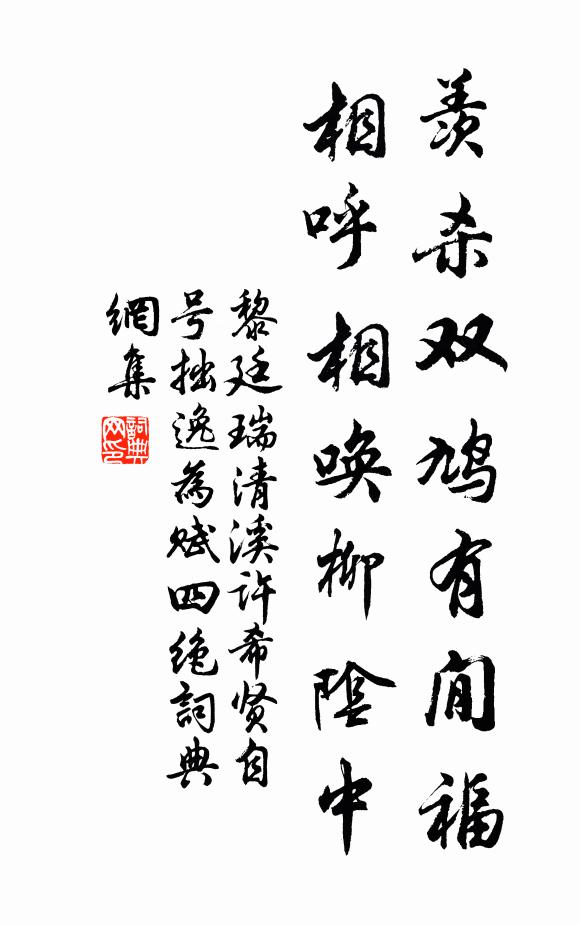 羡杀双鸠有闲福
相呼相唤柳阴中
黎廷瑞清溪许希贤自
号拙逸为赋四绝词典
网集
词典
网印